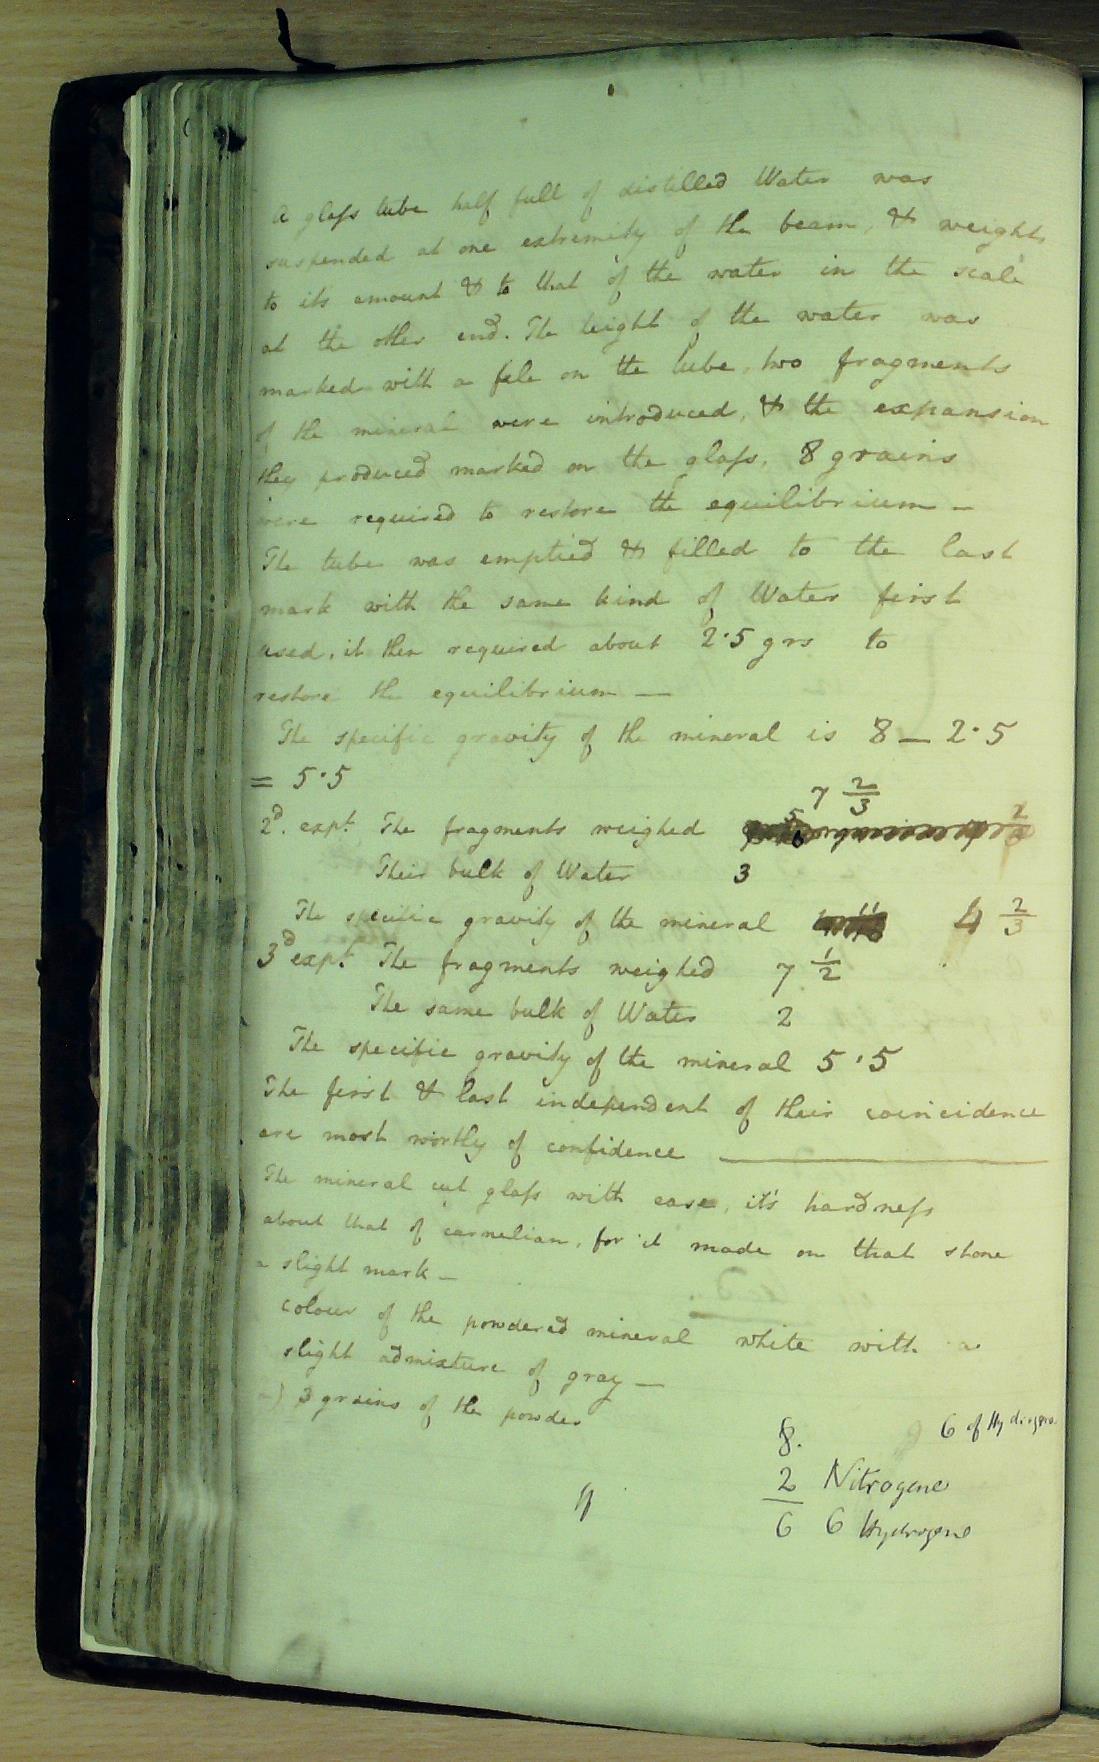 A glass tube half full of distilled Water was
suspended at one extremity of the beam, & weights
to its amount & to that of the water in the scale
at the other end. The height of the water was
marked with a file on the tube, two fragments
of the mineral were introduced, & the expansion
they produced marked on the glass, 8 grains
were required to restore the equilibrium –
The tube was emptied & filled to the last
mark with the same kind of Water first
used, it then required about 2·5 grs to
restore the equilibrium —
The specific gravity of the mineral is 8 – 2·5
= 5·5
7 2/3
2d. expt. The fragments weighed
Their bulk of Water 3
The specific gravity of the mineral 4 2/3
3d expt. The fragments weighed 7 1/2
The same bulk of Water 2
The specific gravity of the mineral 5·5
The first & last independent of their coincidence
are most worthy of confidence —
The mineral cut glass with ease, it's hardness
about that of carnelian, for it made on that stone
a slight mark –
colour of the powdered mineral white with a
slight admixture of gray —
–) 3 grains of the powder
8. 6 of Hydrogene
2 Nitrogene
6 6 Hydrogene